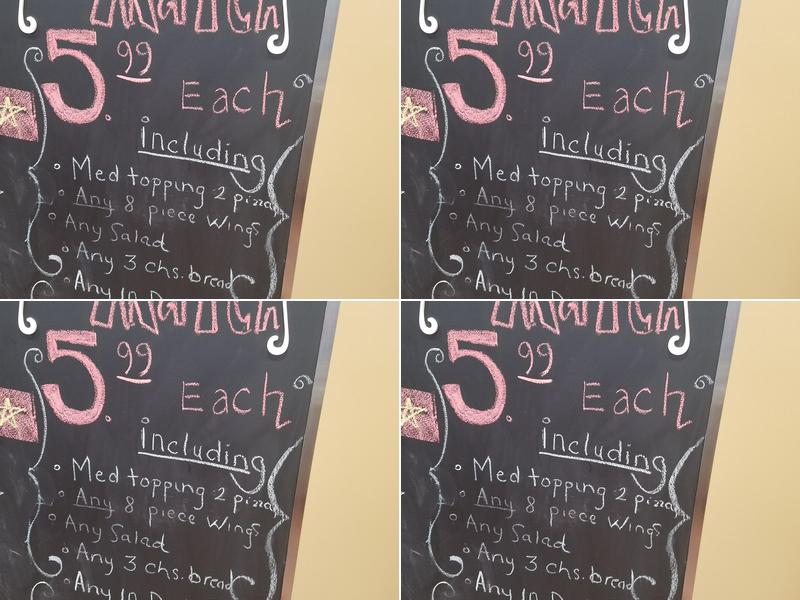 5.99
Each
including
Med topping 2 pizza
Any 8 piece Wings
Any Salad
Any 3 chs. bread
Any
5.99
Each
including
Med topping 2 pizza
Any 8 piece Wings
Any Salad
Any 3 chs. bread
Any
5.99
Each
including
Med topping 2 pizza
Any 8 piece Wings
Any Salad
Any 3 chs. bread
Any
5.99
Each
including
Med topping 2 pizza
Any 8 piece Wings
Any Salad
Any 3 chs. bread
Any